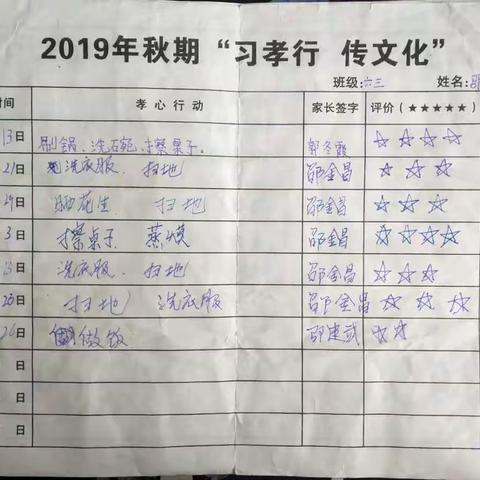 2019年秋期“习孝行 传文化”
班级:六三 姓名:
时间 孝心行动 家长签字 评价(★★★★★)
13日 刷锅、洗碗、擦桌子。 郭冬霞 ☆☆☆☆
21日 洗衣服、扫地 邵金昌 ☆☆☆☆
日 晒花生 扫地 邵金昌 ☆☆☆
3日 擦桌子 蒸馍 邵金昌 ☆☆☆☆
日 洗衣服、扫地 邵金昌 ☆☆☆
日 扫地 洗衣服 邵金昌 ☆☆☆
26日 做饭 邵建武 ☆☆
日
日
日